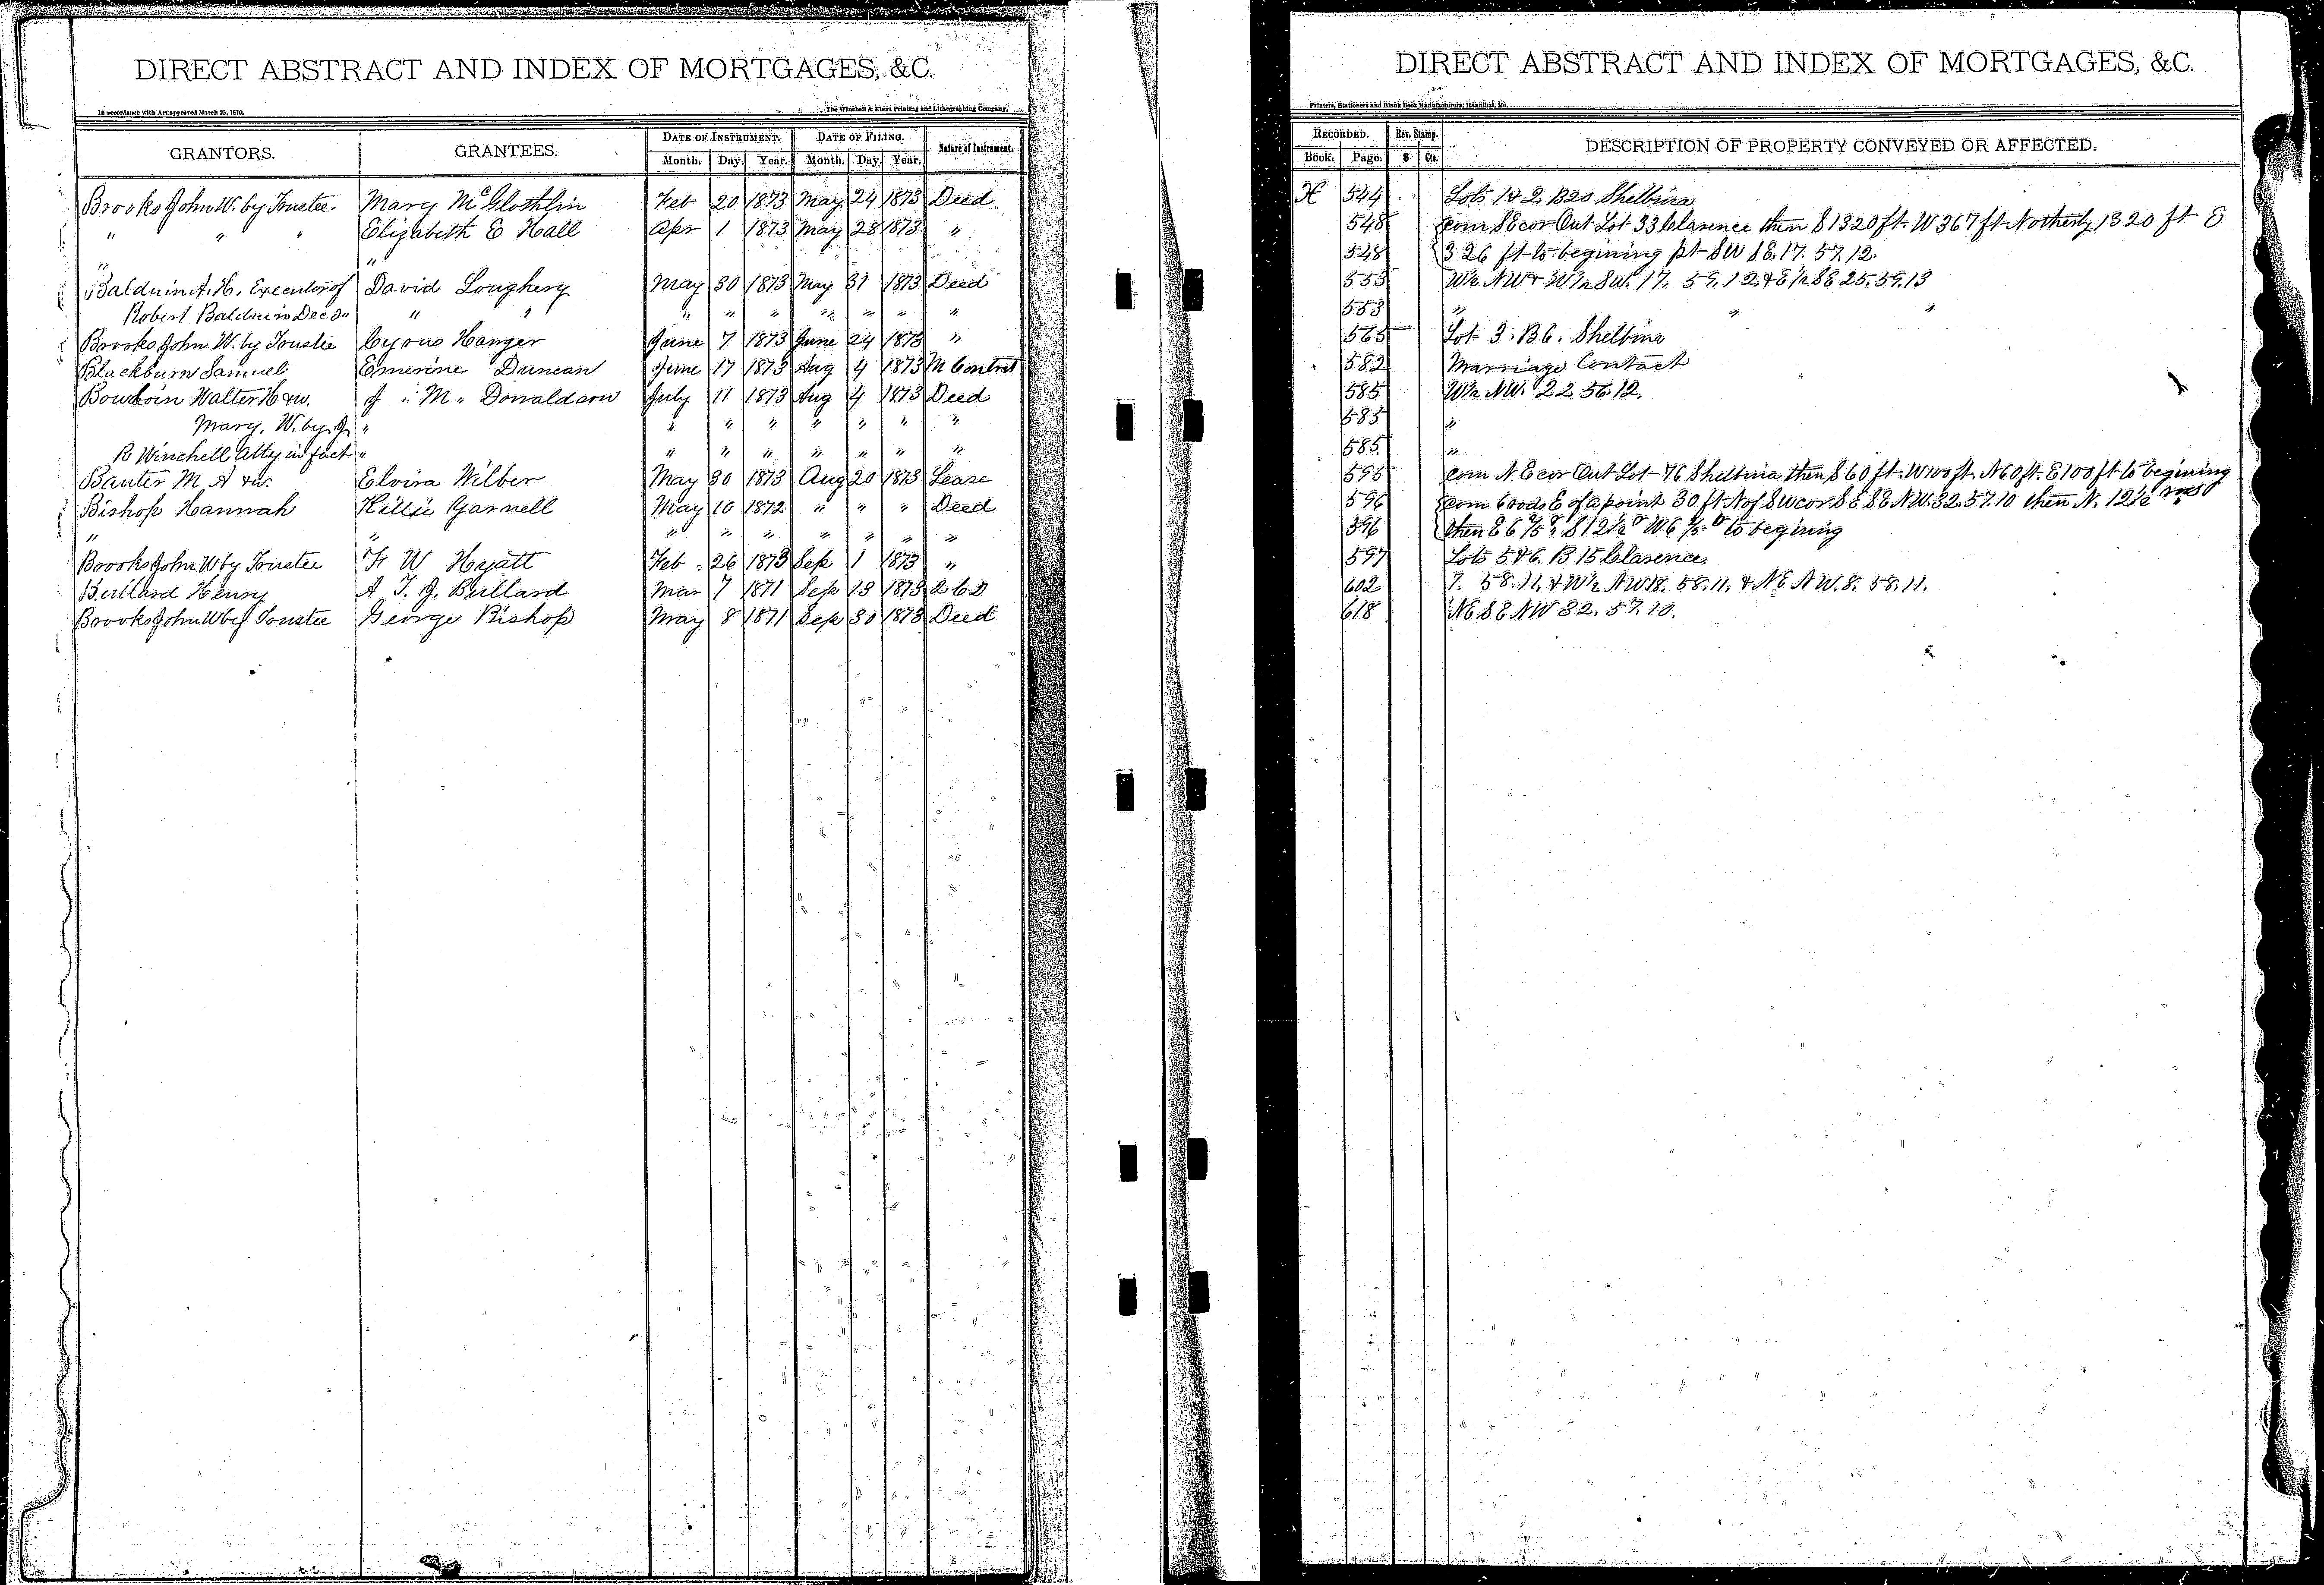 DIRECT ABSTRACT AND INDEX OF MORTGAGES, &C.
In accordance with Act approved March 25, 1870.
The Winchell & Ebert Printing and Lithographing Company,
GRANTORS. GRANTEES. DATE OF INSTRUMENT. DATE OF FILING. Nature of Instrument.
Month. Day. Year. Month. Day. Year.
Brooks John W. by Trustee Mary McGlothlin Feb 20 1873 May 24 1873 Deed
" " " Elizabeth E Hall Apr 1 1873 May 28 1873 "
" "
Balduin A. H. Executor of David Loughery May 30 1873 May 31 1873 Deed
Robert Balduin Decd " " " " " " " " "
Brooks John W. by Trustee Cyrus Hanger June 7 1873 June 24 1873 "
Blackburn Samuel Emerine Duncan June 17 1873 Aug 4 1873 M Contract
Bowdoin Walter H & w. J " M " Donaldson July 11 1873 Aug 4 1873 Deed
Mary, W. by J. " " " " " " " "
R Winchell Atty in fact " " " " " " " "
Banter M. A & w. Elvira Wilber May 30 1873 Aug 20 1873 Lease
Bishop Hannah Killie Garnell May 10 1872 " " " Deed
" " " " " " " " "
Brooks John W by Trustee F W Hyatt Feb 26 1873 Sep 1 1873 "
Bullard Henry A T. J. Bullard Mar 7 1871 Sep 13 1873 2 C D
Brooks John W by Trustee George Bishop May 8 1871 Sep 30 1873 Deed
DIRECT ABSTRACT AND INDEX OF MORTGAGES, &C.
Printers, Stationers and Blank Book Manufacturers, Hannibal, Mo.
RECORDED. Rev. Stamp. DESCRIPTION OF PROPERTY CONVEYED OR AFFECTED.
Book. Page. $ Cts.
H 544 Lots 1 & 2 B 20 Shelbina
548 Com S E cor Out Lot 33 Clarence then S 1320 ft. W 367 ft Notherly 1320 ft E
548 326 ft to begining pt SW 18.17.57.12.
553 W½ NW & W½ SW. 17. 59. 12 & E½ SE 25. 59. 13
553 " " "
565 Lot 3. B 6. Shelbina
582 Marriage Contact
585 W½ NW. 22 56. 12.
585 "
585 "
595 Com N. E cor Out Lot 76 Shelbina then S 60 ft. W 100 ft. N 60 ft. E 100 ft to begining
596 Com 6 rods E of a point 30 ft N of SW cor S E SE NW. 32. 57. 10 then N. 12½ rods
596 then E 6 2/5 " S 12½ " W 6 2/5 " to begining
597 Lots 5 & 6. B 15 Clarence.
602 7. 58. 11. & W½ NW 18. 58. 11. & NE NW. 8. 58. 11.
618 NE SE NW 32. 57. 10.